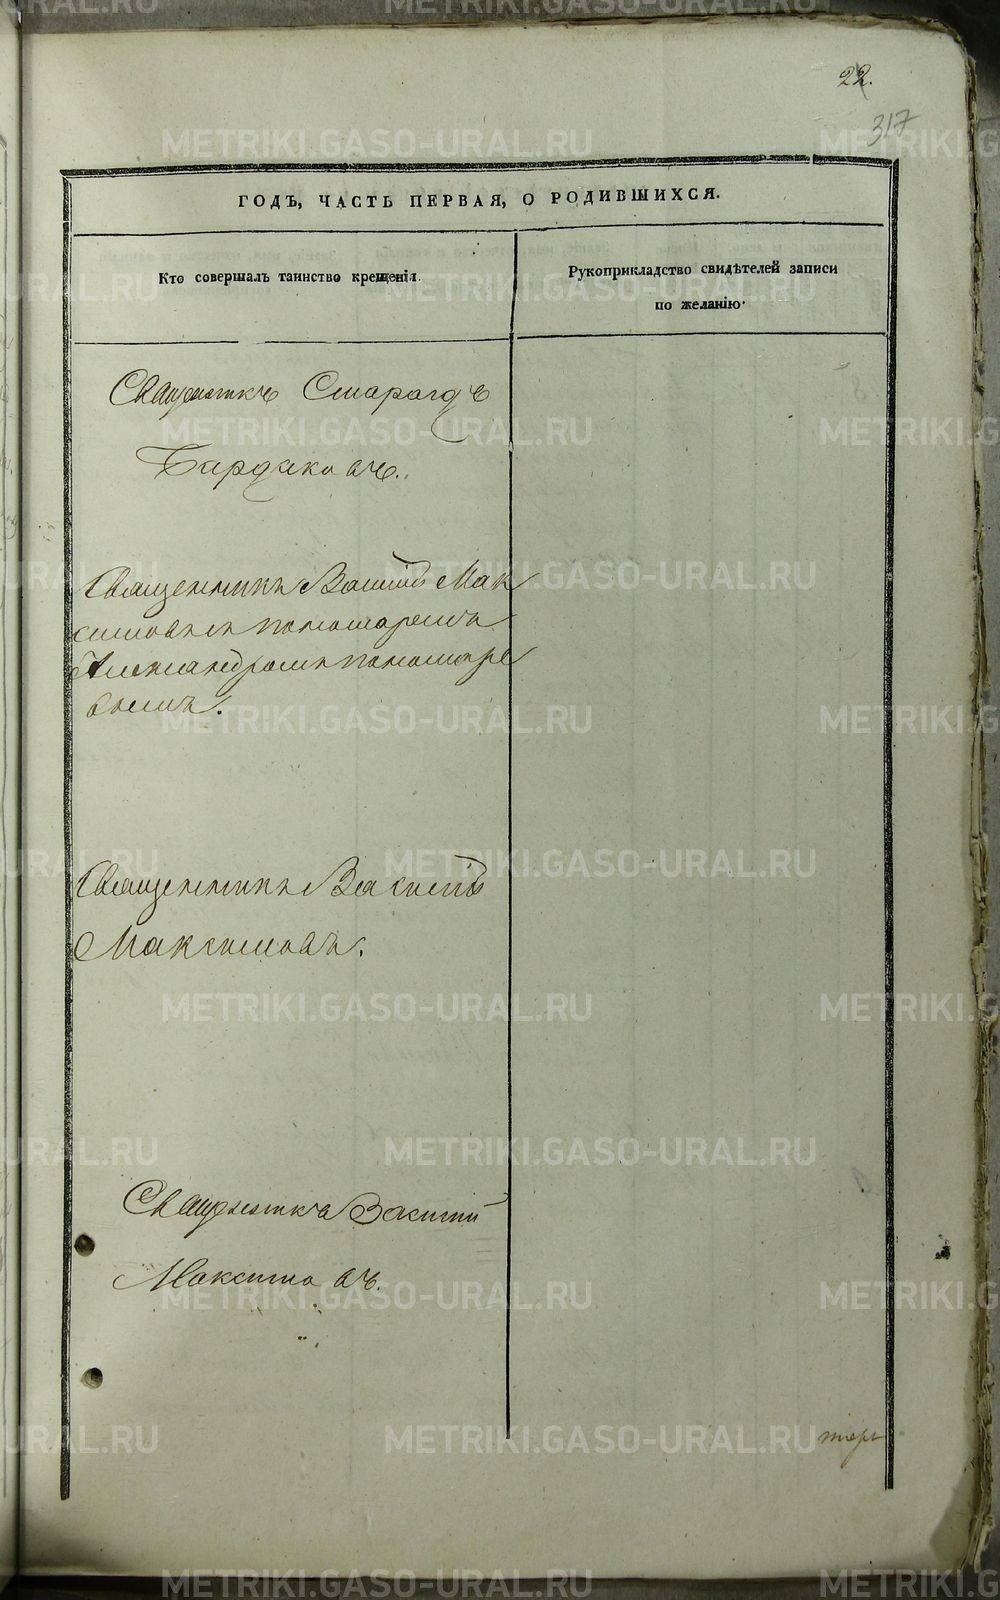 22.
317
ГОДЪ, ЧАСТЬ ПЕРВАЯ, О РОДИВШИХСЯ.
Кто совершалъ таинство крещенія.
Рукоприкладство свидѣтелей записи
по желанію.
Священникъ Смарагдъ
Бирюковъ.
Священникъ Василій Мак
симовъ съ пономаремъ
Александромъ пономаре
вымъ.
Священникъ Василій
Максимовъ.
Священникъ Василій
Максимовъ.
METRIKI.GASO-URAL.RU